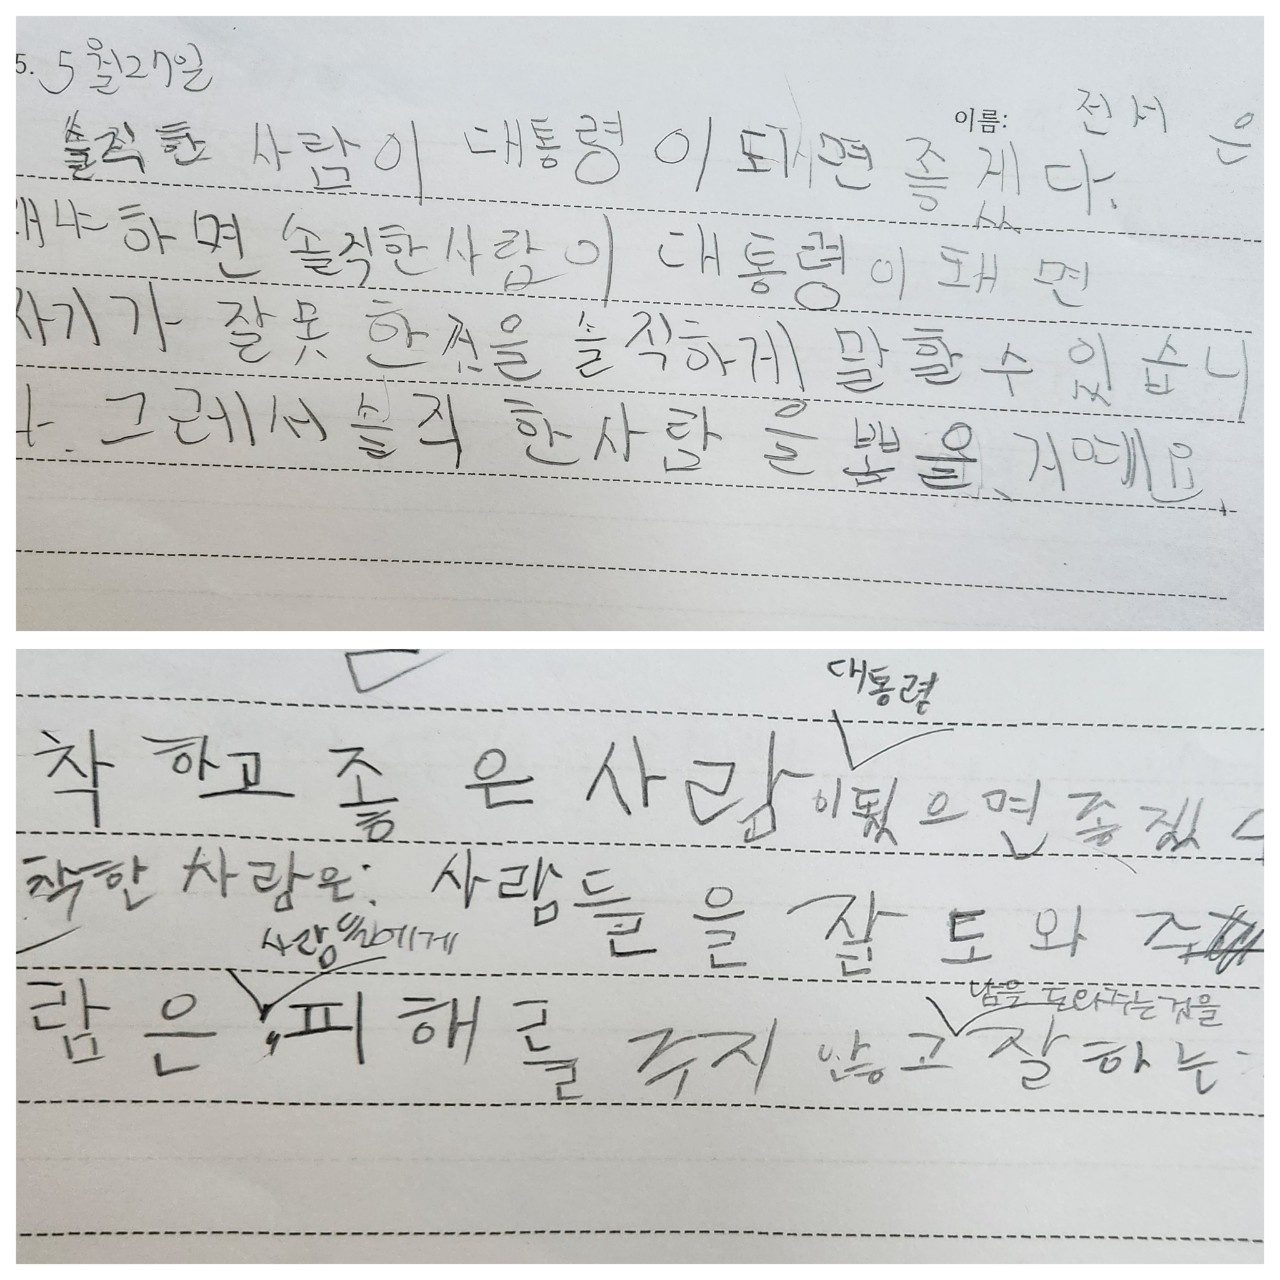 5. 5월27일
이름: 전서은
솔직한 사람이 대통령이 돼면 좋겠다.
냐하면 솔직한사람이 대통령이 돼면
자기가 잘못 한것을 솔직하게 말할 수 있습니
. 그레서 솔직 한사람을 뽑을 거예요.
대통령
착하고 좋은 사람이됬으면 좋겠
착한 사람은: 사람들을 잘 도와 주
사람들에게 남을 도와주는것을
람은 피해를 주지 않고 잘하는